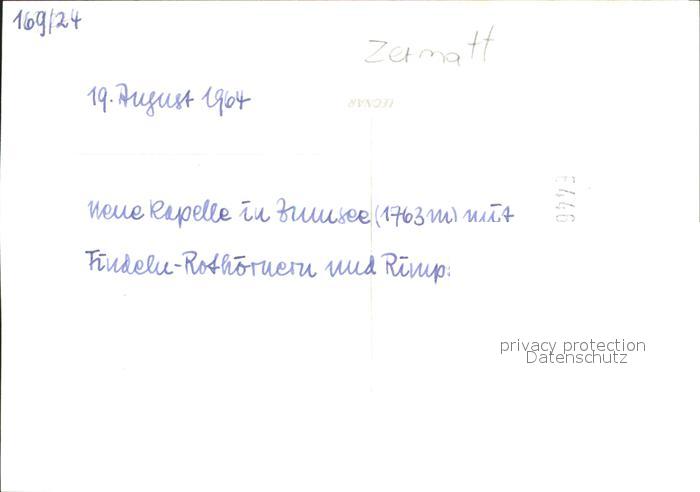 169/24
Zermatt
19. August 1964
LEONAR
Neue Kapelle in Zmusee (1763m) mit
E446
Findeln-Rothörnern und Rimp.
privacy protection
Datenschutz